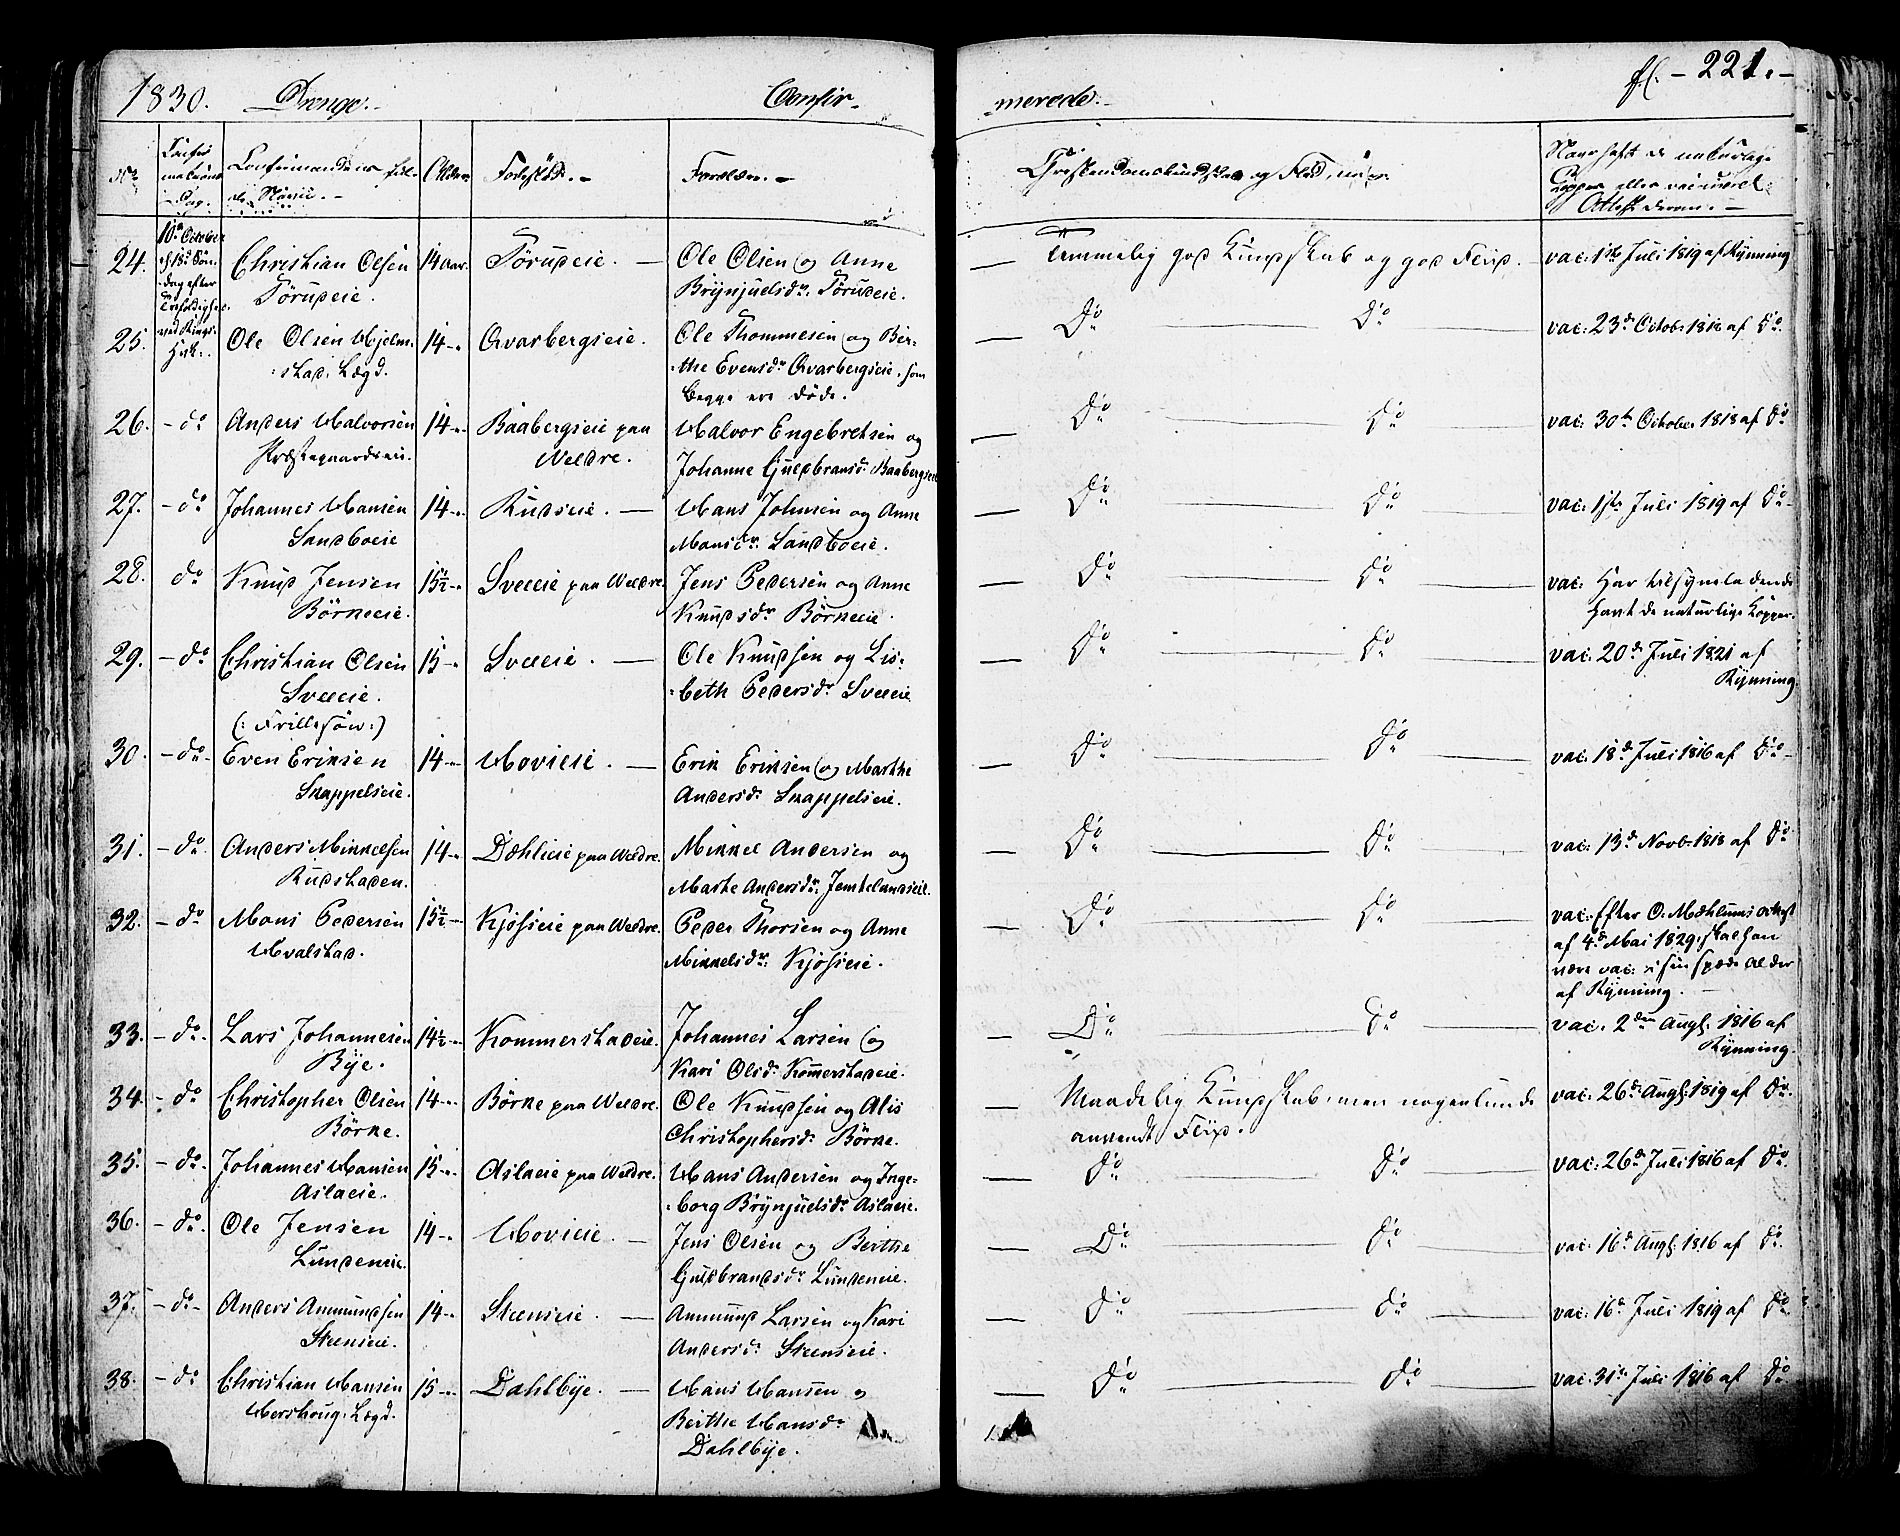 1830. Drenge.- Confir-
merede.- fl. - 221.-
No
Confirmations Dag.
Confirmandens fulde Navn.-
Alder
Fødested.-
Forældre.-
Christendomskundskab og Flid
naturlige
Kopper eller vaccineret
Attest derom.-
24.
10de October
18de Søn-
dag efter
ved Rings-
Christian Olsen
Törudeie.
14 Aar.
Törudeie. —
Ole Olsen og Anne
Brynjuelsdr. Törudeie.
— Temmelig god Kundskab og god Flid.
vac: 1ste Juli 1819 af Rynning
25.
Ole Olsen Hjelm-
stad. Lægd.
14 -
Qvarbergseie.
Ole Thommesen og Ber-
the Evensdr Qvarbergseie, som
begge ere døde.
— Do — Do —
vac: 23d Octob: 1818 af Do.
26. - do
Anders Halvorsen
Præstegaardseie.
14 -
Baabergseie paa
Veldre.
Halvor Engebretsen og
Johanne Guldbransdr Baabergseie
— Do — Do —
vac: 30te October 1818 af Do
27. - do
Johannes Hansen
Sandboeie
14 -
Rudseie. —
Hans Johnsen og Anne
Hansdr. Sandboeie.
— Do — Do —
vac: 1ste Juli 1819 af Do-
28. do
Knud Jensen
Börkeeie.
15½ -
Sveeeie paa Veldre.
Jens Pedersen og Anne
Knudsdr Börkeeie.
— Do — Do —
vac: Har tilsyneladende
havt de naturlige Kopper.
29. - do
Christian Olsen
Sveeeie.
(: Frillesøn :)
15 -
Sveeeie. —
Ole Knudsen og Lis-
beth Pedersdr Sveeeie
— Do — Do —
vac: 20de Juli 1821 af
Rynning
30. - do.
Even Eriksen
Skappelseie.
14 -
Hovieie. —
Erik Eriksen og Marthe
Andersdr Skappelseie.
— Do — Do —
vac: 18de Juli 1816 af Do-
31. - do.
Anders Mikkelsen
Rudstaden.
14 -
Dæhlieie paa Veldre.
Mikkel Andersen og
Marte Andersdr. Jemtelandseie.
— Do — Do —
vac: 13de Novb. 1818 af Do
32. - do
Mons Pedersen
Hvalstad.
15½ -
Kjoseie paa Veldre.
Peder Thorsen og Anne
Mikkelsdr. Kjoseie.
— Do — Do —
vac: Efter O. Mæhlums Attest
af 4de Mai 1829, skal han
være vac: i sin spæde Alder
af Rynning. —
33. - do.
Lars Johannesen
Bye.
14½ -
Kommerstadeie.
Johannes Larsen og
Kari Olsdr Kommerstadeie.
— Do — Do —
vac. 2den Augs. 1816 af
Rynning.
34. - do
Christopher Olsen
Börke.
14 -
Börke paa Veldre.
Ole Knudsen og Alis
Christophersdr Börke.
— Maadelig Kundskab, men nogenlunde
anvendt Flid.
vac: 26de Augs: 1819 af Do.
35. - do.
Johannes Hansen
Aslaeie.
15 -
Aslaeie paa Veldre.
Hans Andersen og Inge-
borg Brynjuelsdr Aslaeie.
— Do — Do —
vac: 26de Juli 1816 af Do.
36. - do.
Ole Jensen
Lundeneie.
14 -
Hovieie. —
Jens Olsen og Berthe
Guldbrandsdr Lundeneie.
— Do — Do —
vac: 16de Augs: 1816 af Do.
37. - do-
Anders Ammundsen
Steenseie.
14 -
Steenseie. —
Ammund Larsen og Kari
Andersdr Steenseie.
— Do — Do —
vac: 16de Juli 1819 af Do
38. - do
Christian Hansen
Hershoug. Lægd.
15 -
Dahlbye. —
Hans Hansen og
Berthe Hansdr
Dahlbye.
— Do — Do —
vac: 31te Juli 1816 af Do